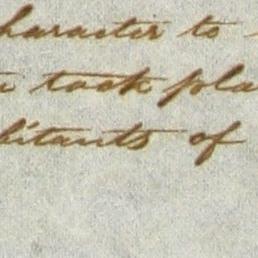 haracter to
took pla
bitants of